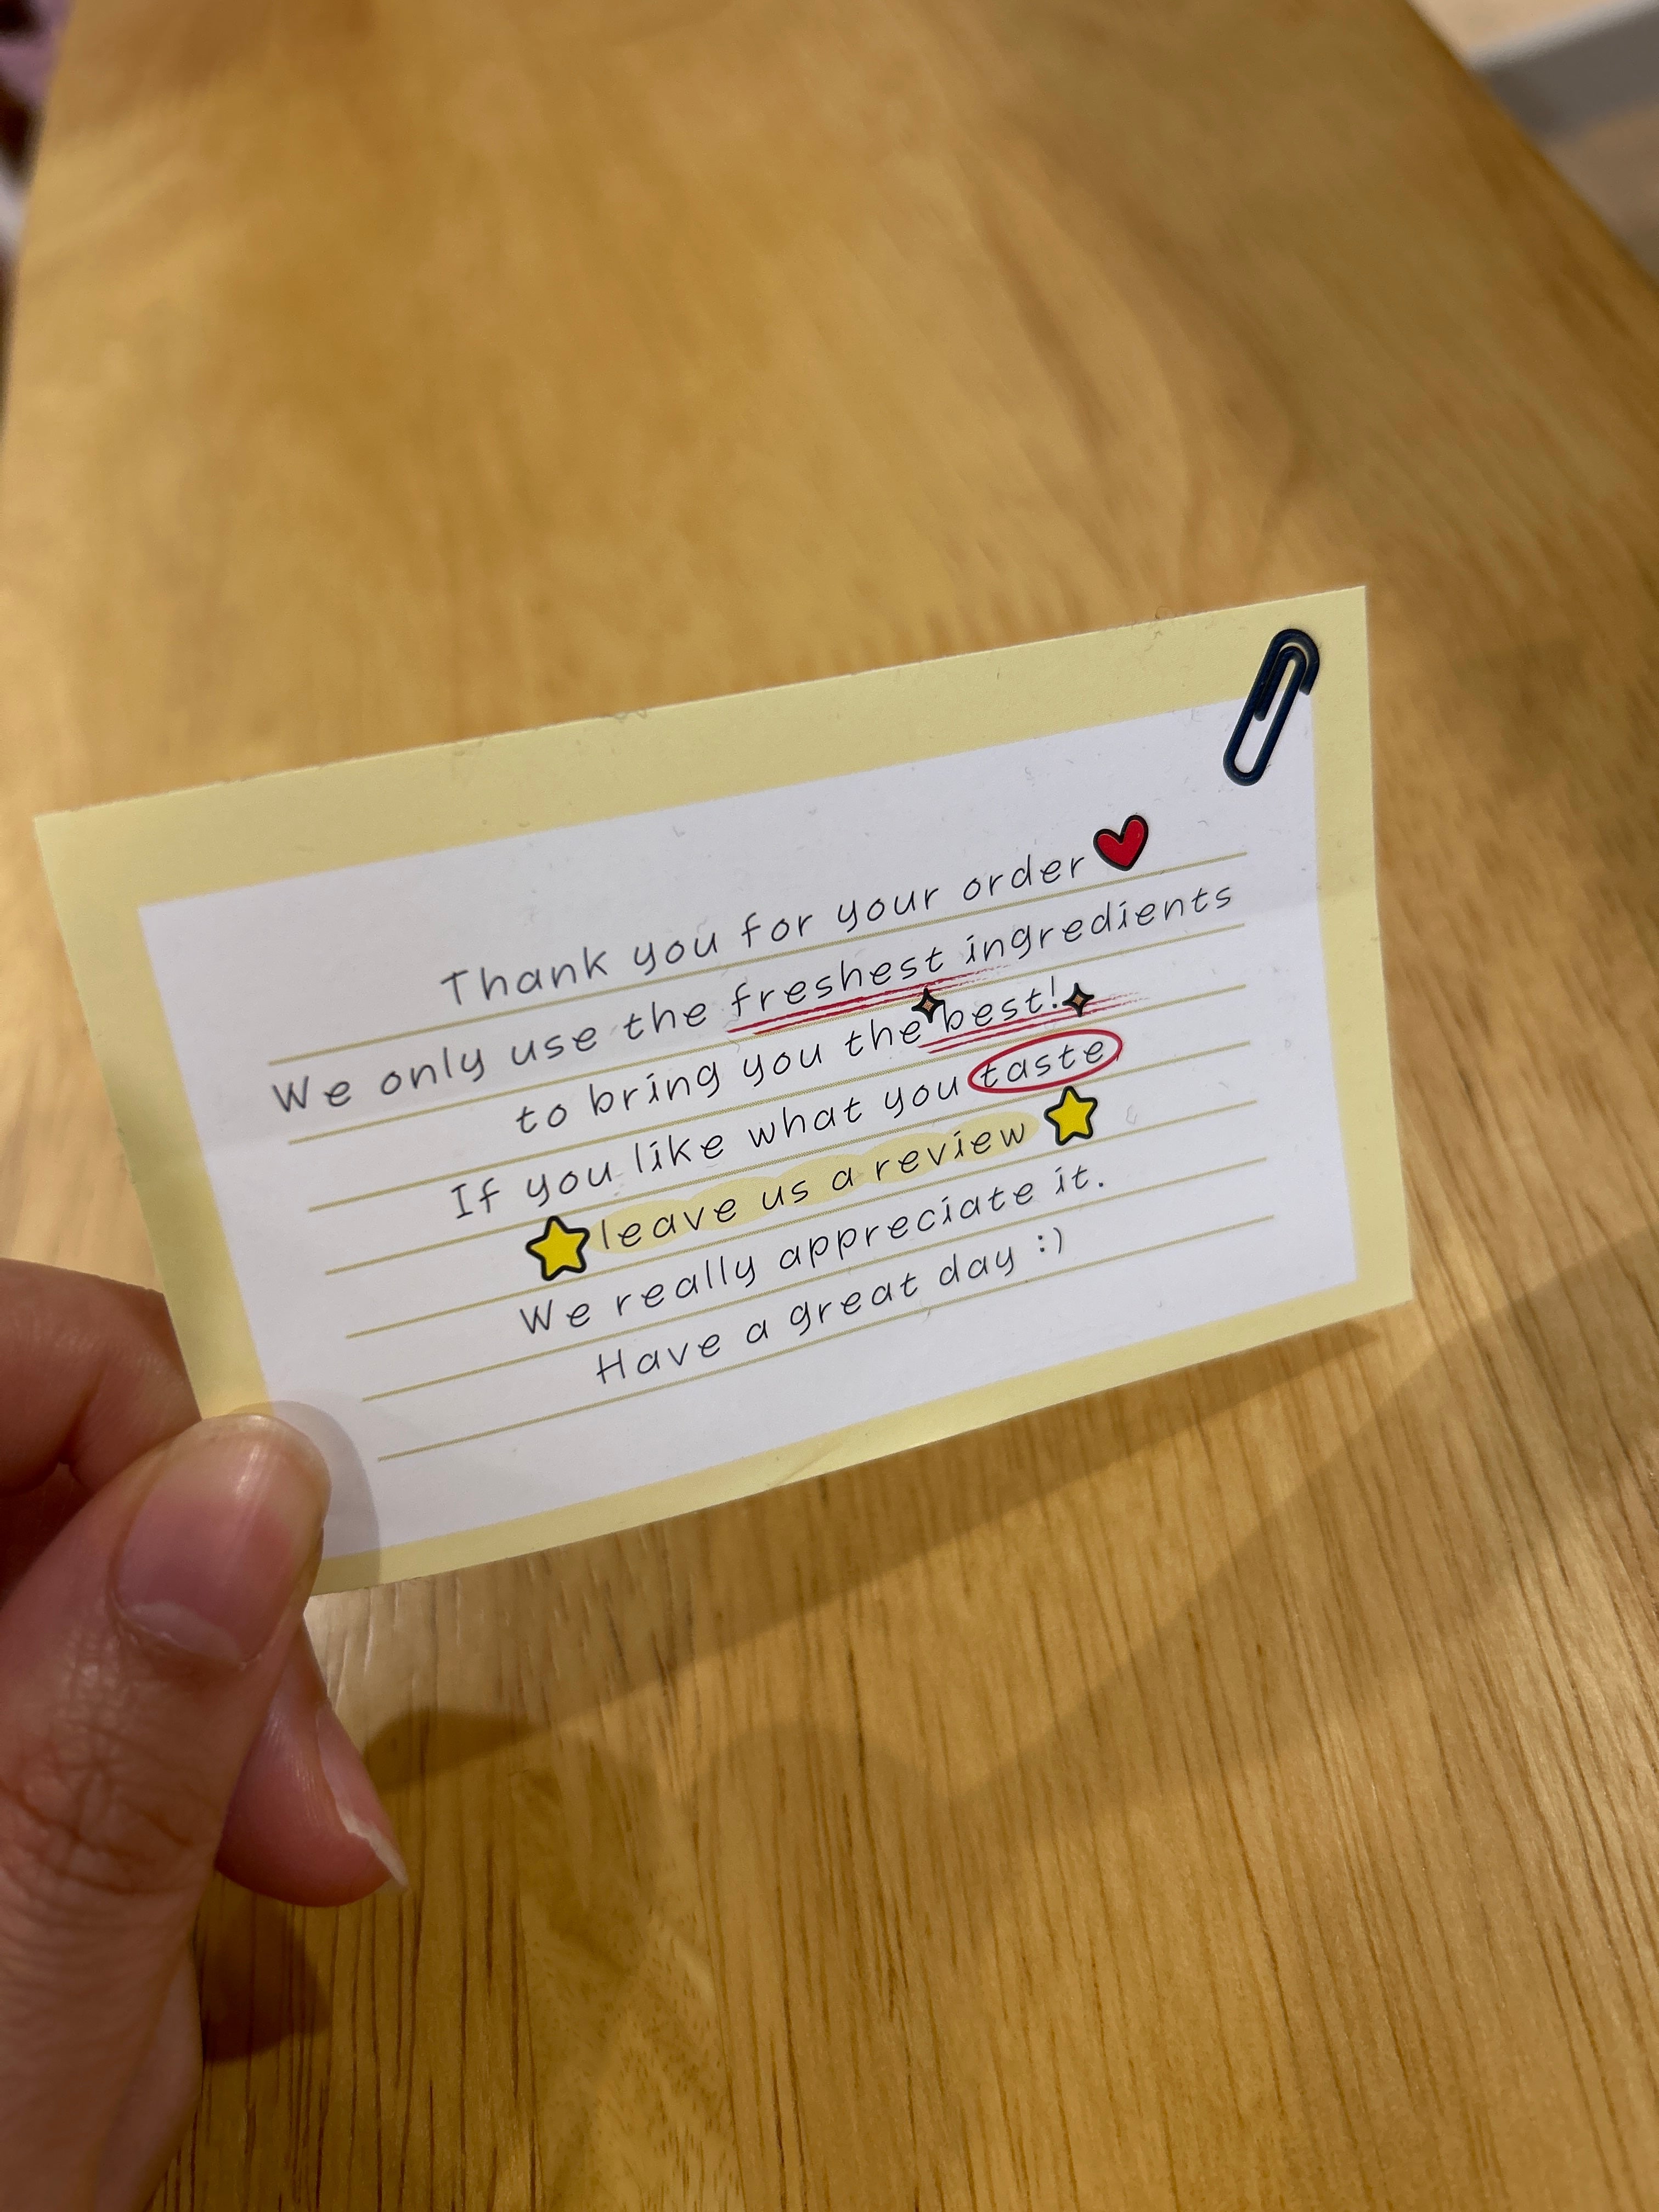 Thank you for your order
We only use the freshest ingredients
to bring you the best!
If you like what you taste
leave us a review
We really appreciate it.
Have a great day :)